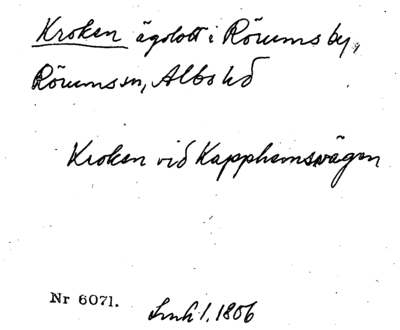 Kroken ägolott i Rörums by,
Rörums sn, Albo hd
Kroken vid Kapphemsvägen
Nr 6071.
Lmh 1. 1806